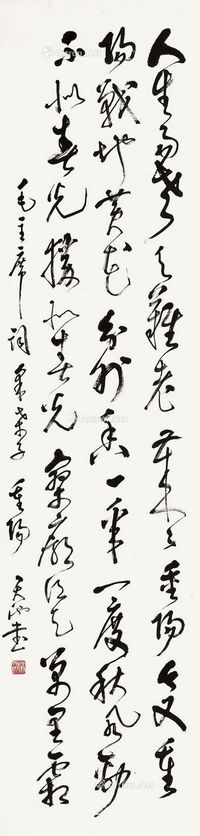 人生易老天難老歲歲重陽今又重
陽戰地黄花分外香一年一度秋風勁
不似春光勝似春光寥廓江天萬里霜
毛主席詞采桑子重陽 天池書